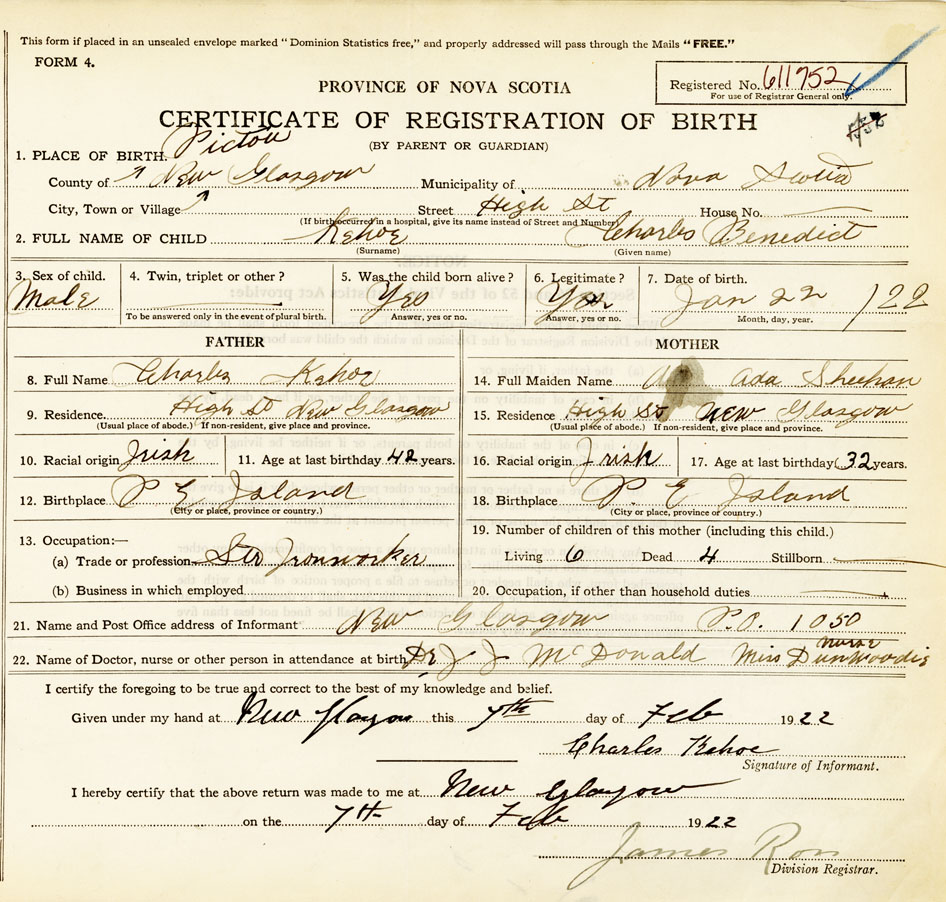 This form if placed in an unsealed envelope marked "Dominion Statistics free," and properly addressed will pass through the Mails "FREE."
FORM 4.
PROVINCE OF NOVA SCOTIA
Registered No. 611752
For use of Registrar General only.
CERTIFICATE OF REGISTRATION OF BIRTH
(BY PARENT OR GUARDIAN)
1. PLACE OF BIRTH. Pictou
County of New Glasgow Municipality of Nova Scotia
City, Town or Village Street High St House No.
(If birth occurred in a hospital, give its name instead of Street and Number)
2. FULL NAME OF CHILD Kehoe Charles Benedict
(Surname) (Given name)
3. Sex of child. 4. Twin, triplet or other? 5. Was the child born alive? 6. Legitimate? 7. Date of birth.
Male Yes Yes Jan 22 /22
To be answered only in the event of plural birth. Answer, yes or no. Answer, yes or no. Month, day, year.
FATHER
8. Full Name Charles Kehoe
9. Residence. High St New Glasgow
(Usual place of abode.) If non-resident, give place and province.
10. Racial origin Irish 11. Age at last birthday 42 years.
12. Birthplace P E Island
(City or place, province or country.)
13. Occupation:—
(a) Trade or profession Str Ironworker
(b) Business in which employed
MOTHER
14. Full Maiden Name Ada Sheehan
15. Residence High St New Glasgow
(Usual place of abode.) If non-resident, give place and province.
16. Racial origin Irish 17. Age at last birthday 32 years.
18. Birthplace P. E Island
(City or place, province or country.)
19. Number of children of this mother (including this child.)
Living 6 Dead 4 Stillborn
20. Occupation, if other than household duties
21. Name and Post Office address of Informant New Glasgow P.O. 1050
22. Name of Doctor, nurse or other person in attendance at birth Dr J J McDonald Miss Dunwoodie nurse
I certify the foregoing to be true and correct to the best of my knowledge and belief.
Given under my hand at New Glasgow this 7th day of Feb 1922
Charles Kehoe
Signature of Informant.
I hereby certify that the above return was made to me at New Glasgow
on the 7th day of Feb 1922
James Ross
Division Registrar.